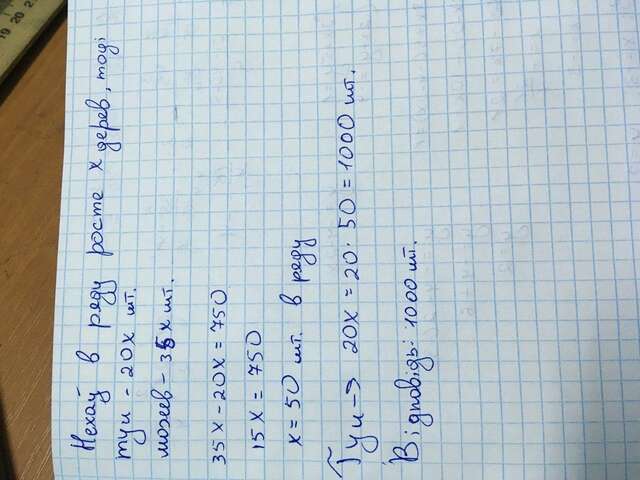 Нехай в ряду росте х дерев, тоді
туи - 20х шт.
можев - 35х шт.
35х - 20х = 750
15х = 750
х = 50 шт. в ряду
Туи → 20х = 20 · 50 = 1000 шт.
Відповідь: 1000 шт.